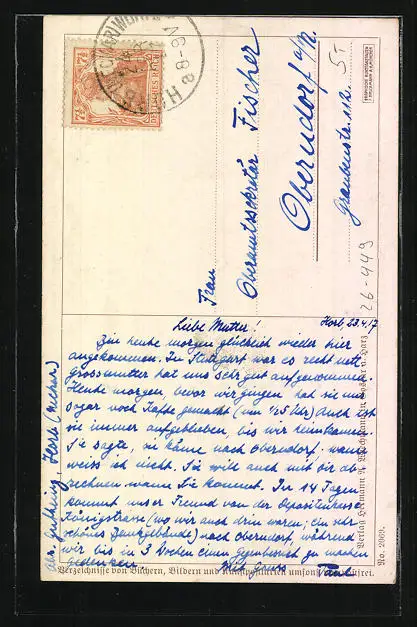 7½
DEUTSCHES REICH
HORB
Frau
Oberamtssekretär Fischer
Oberndorf a/N.
Grabenstr. 112.
5-
26-449
Horb, 23.4.17
Liebe Mutter!
Bin heute morgen glücklich wieder hier
angekommen. In Stuttgart war es recht nett
Grossmutter hat uns sehr gut aufgenommen.
Heute morgen, bevor wir gingen hat sie uns
sogar noch Kaffe gemacht (um ½5 Uhr) Auch ist
sie immer aufgeblieben, bis wir heimkamen.
Sie sagte, sie käme nach Oberndorf, wann
weiss ich nicht. Sie will auch mit dir ab
rechnen wann Sie kommt. In 14 Tagen
kommt unser Freund von der Depositenkasse
Königstrasse (wo wir auch drin waren; ein sehr
schönes Bankgebäude) nach Oberndorf, während
wir bis in 3 Wochen einen Gegenbesuch zu machen
gedenken. Mit Gruss Paul
Verzeichnisse von Büchern, Bildern und Kunstpostkarten umsonst und postfrei.
No. 2069.